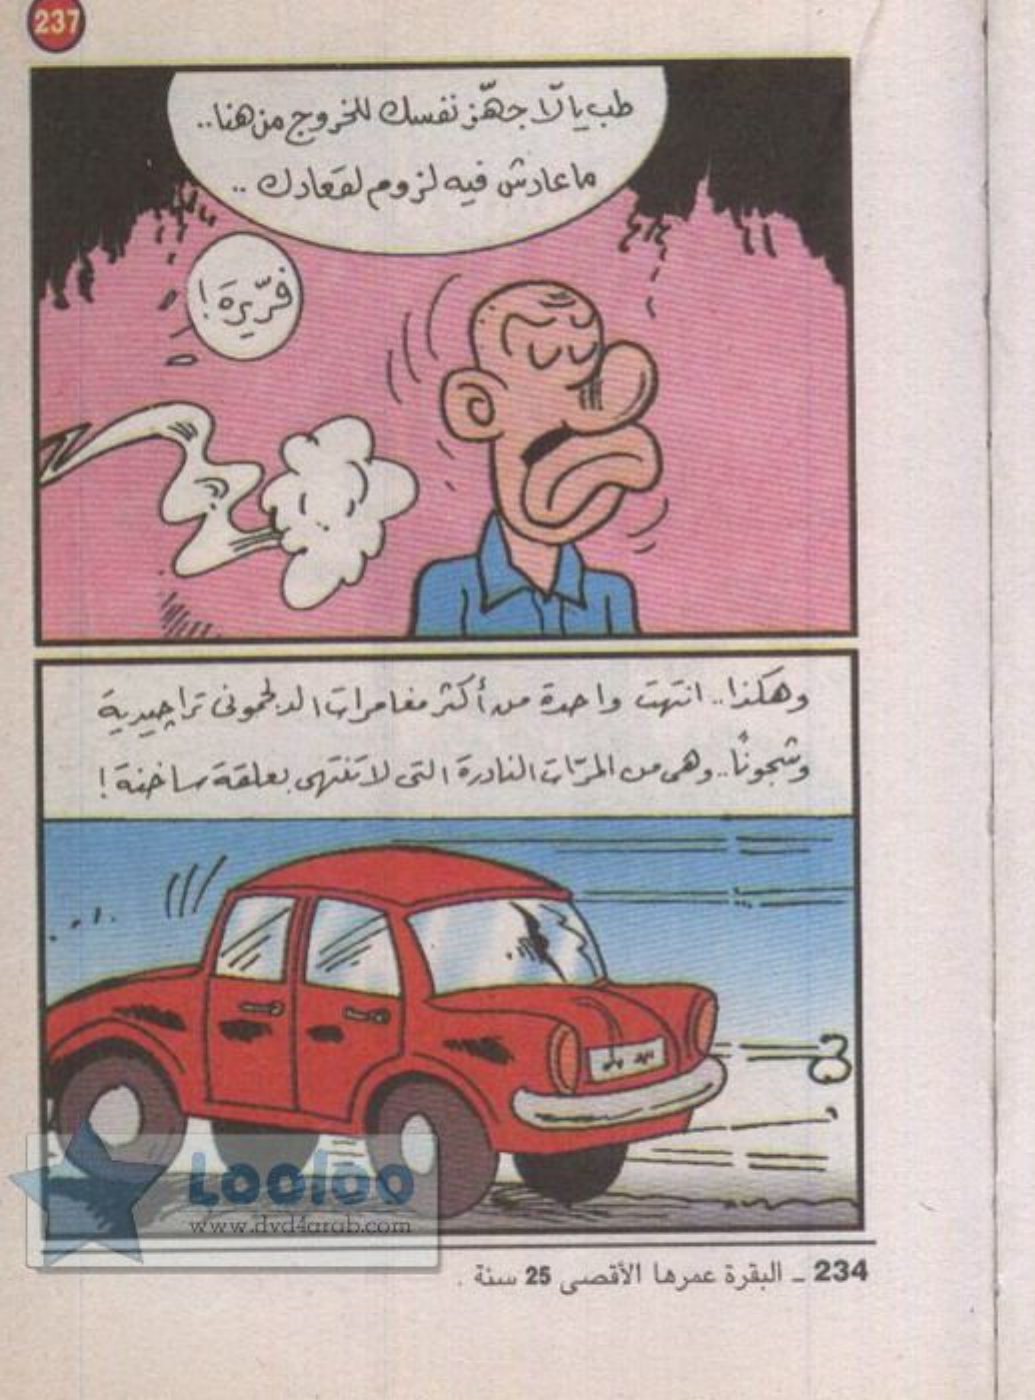 237
طب يالّا جهّز نفسك للخروج من هنا..
ماعادش فيه لزوم لقعادك ..
فرّيرَة!
وهكذا.. انتهت واحدة من أكثر مغامرات الدبلحمونى تراچيدية
وشجونًا.. وهى من المرّات النادرة التى لا تنتهى بعلقة ساخنة!
Looloo
www.dvd4arab.com
234 ـ البقرة عمرها الأقصى 25 سنة .